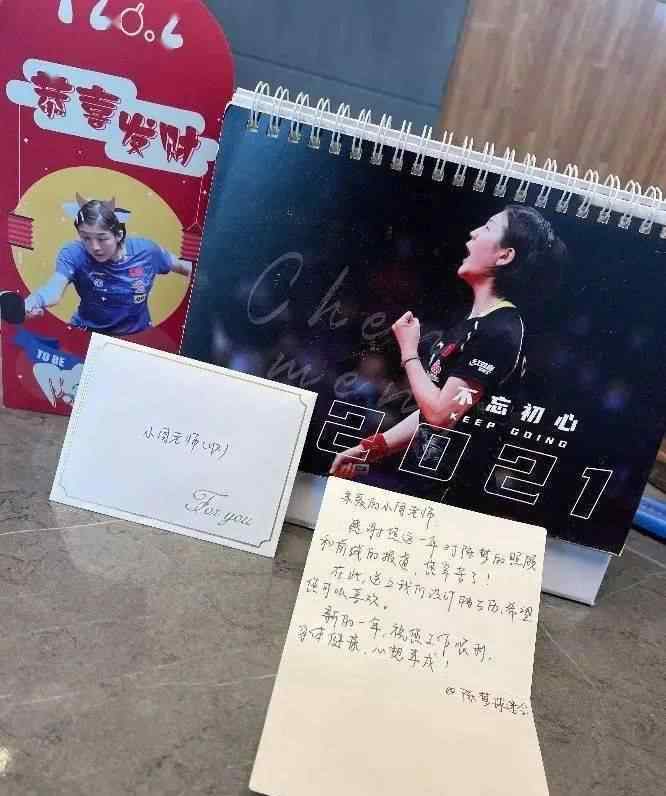 恭喜发财
TO BE
Chen
men
不忘初心
KEEP GOING
2021
小周老师(收)
For you
亲爱的小周老师:
感谢您这一年对陈梦的照顾
和前线的报道,您辛苦了!
在此,送上我们设计的台历,希望
您可以喜欢。
新的一年,祝您工作顺利,
身体健康,心想事成!
@陈梦球迷会